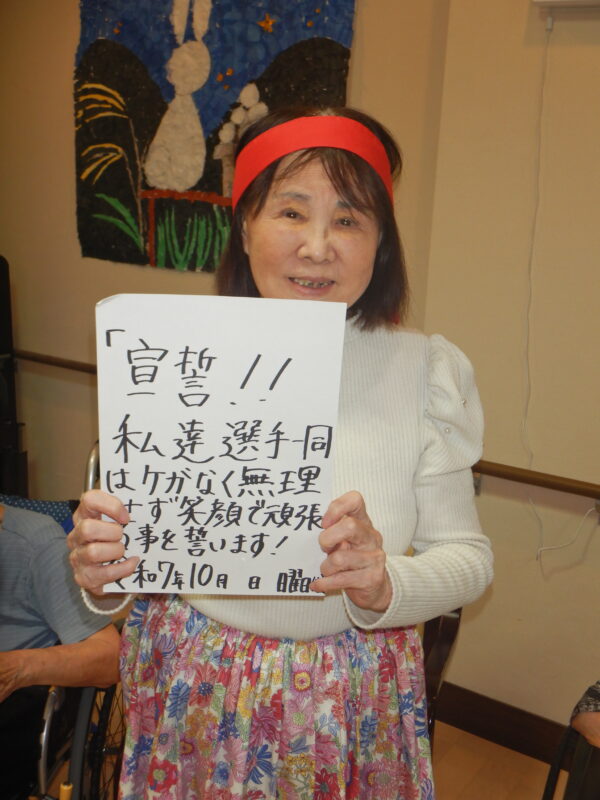 「宣誓!!
私達選手一同
はケがなく無理
せず笑顔で頑張
の事を誓います!
令和7年10月 日 曜日